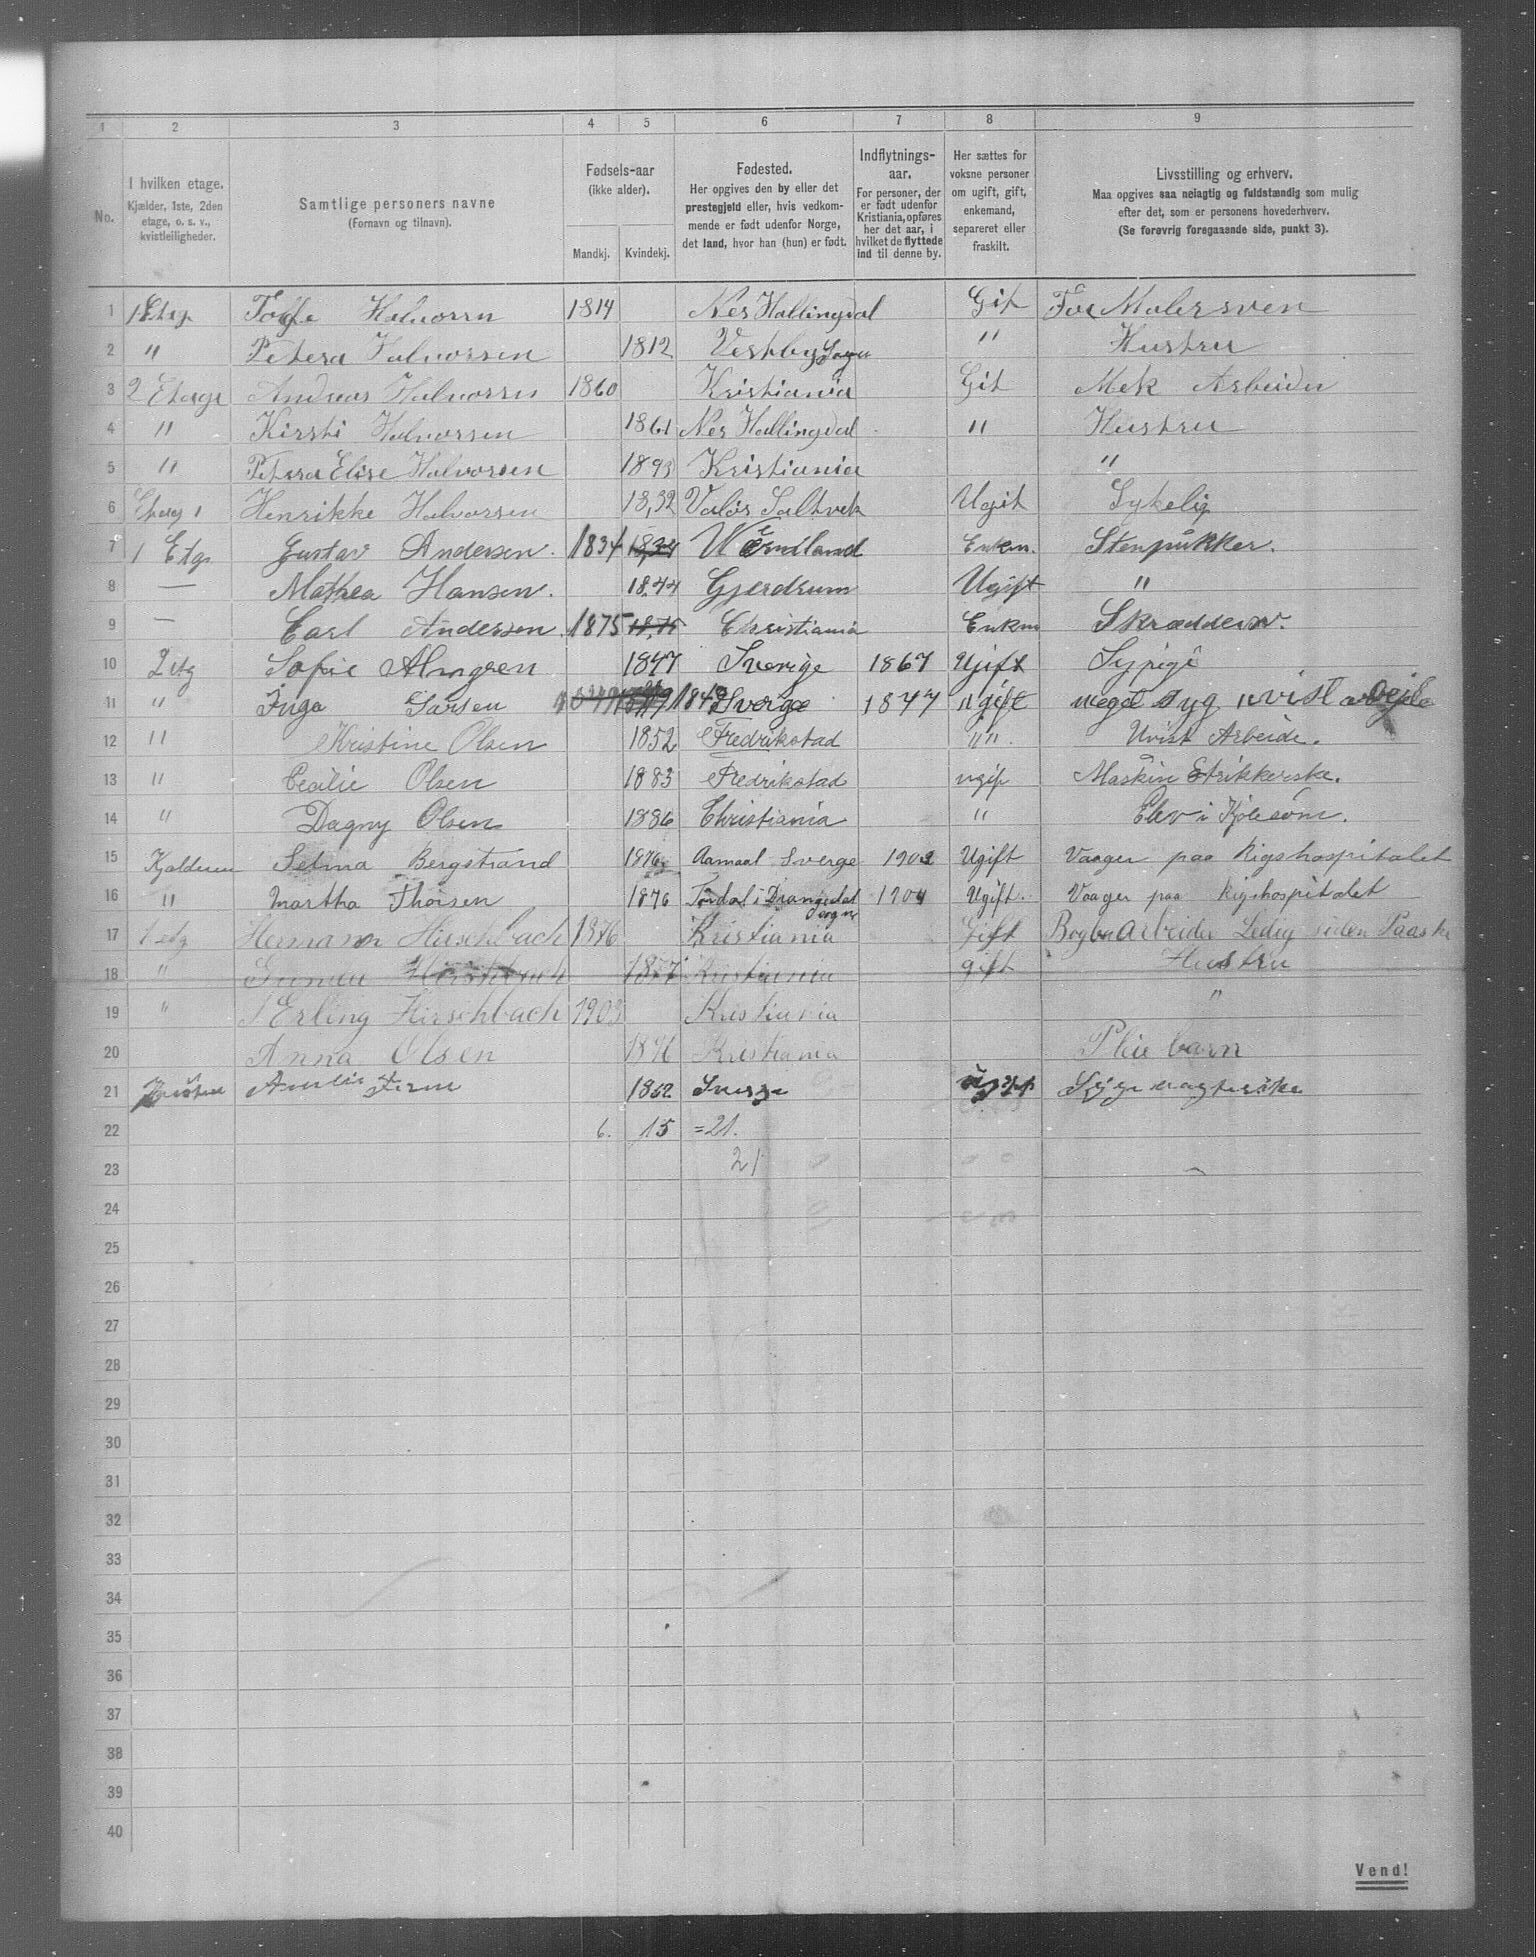 1 2 3 4 5 6 7 8 9
No.
I hvilken etage.
Kjælder, 1ste, 2den
etage, o. s. v.,
kvistleiligheder.
Samtlige personers navne
(Fornavn og tilnavn).
Fødsels-aar
(ikke alder).
Mandkj. Kvindekj.
Fødested.
Her opgives den by eller det
prestegjeld eller, hvis vedkom-
mende er født udenfor Norge,
det land, hvor han (hun) er født.
Indflytnings-
aar.
For personer, der
er født udenfor
Kristiania, opføres
her det aar, i
hvilket de flyttede
ind til denne by.
Her sættes for
voksne personer
om ugift, gift,
enkemand,
separeret eller
fraskilt.
Livsstilling og erhverv.
Maa opgives saa nøiagtig og fuldstændig som mulig
efter det, som er personens hovederhverv.
(Se forøvrig foregaaende side, punkt 3).
1 1 Etag Halvorsn 1814 Nes Hallingdal Git Malersven
2 " Petera Halvorsen 1812 Vestby Sogn " Hustru
3 2 Etage Andreas Halvorsen 1860 Kristiania Git Mek Arbeider
4 " Kirsti Halvorsen 1861 Nes Hallingdal " Hustru
5 " Petera Elise Halvorsen 1893 Kristiania "
6 Etag 1 Henrikke Halvorsen 1832 Ugit Sykelig
7 1 Etg. Gustav Andersen. 1834 1834 Wermland Enkm. Stenpukker.
8 — Mathea Hansen. 1844 Gjerdrum Ugift "
9 — Carl Andersen. 1875 1875 Christiania Enkm Skrædderso.
10 2 etg Sofie Almgren 1847 Sverige 1867 Ugift Sypige
11 " Inga Larsen 1849 Sverge 1877 ugift meget syg uvist
12 " Kristine Olsen 1852 Fredrikstad " " . Uvist Arbeide.
13 " Cecilie Olsen 1883 Fredrikstad ugift Maskin Strikkerske.
14 " Dagny Olsen 1886 Christiania " Elev i Kjolesøm.
15 Kjalderen Selma Bergstrand 1876 Aamaal Sverge 1903 Ugift Vaager paa Rigshospitalet
16 " Martha Thorsen 1876 Tørdal i Drangedal sogn 1904 Ugift. Vaager paa Rigshospitalet
17 1 etg Hermann Hirschbach 1876 Kristiania Gift Arbeider Ledig siden Paaske
18 " Hirschbach 1877 Kristiania gift Hustru
19 " Erling Hirschbach 1903 Kristiania "
20 Anna Olsen 1896 Kristiania Pleie barn
21 1862 Sverge ugift Sygevagterske
22 6. 15 =21.
23 21
24
25
26
27
28
29
30
31
32
33
34
35
36
37
38
39
40
Vend!